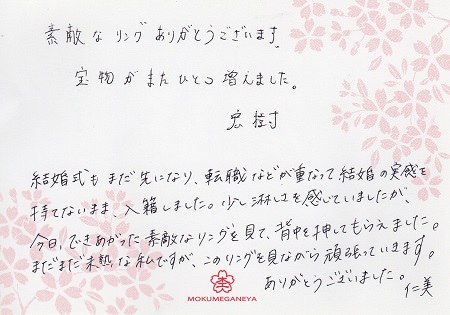 素敵なリングありがとうございます。
宝物がまたひとつ増えました。
宏樹
結婚式もまだ先になり、転職などが重なって結婚の実感を
持てないまま、入籍しました。少し淋しさを感じていましたが、
今日、できあがった素敵なリングを見て、背中を押してもらえました。
まだまだ未熟な私ですが、このリングを見ながら頑張っていきます。
ありがとうございました。
仁美
MOKUMEGANEYA